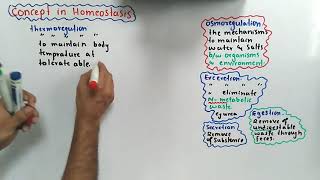 Concept in Homeostasis
thermoregulation
" " " "
to maintain body
temprature at
tolerate able
osmoregulation
the mechanisms
to maintain
water & salts
b/w organisms
& environment
Excretion
" " " "
" eliminate
N₂-metabolic
waste
eg urea
Secretion
Remove
of Substance
Egestion
Remove of
undigestable
waste through
feces.